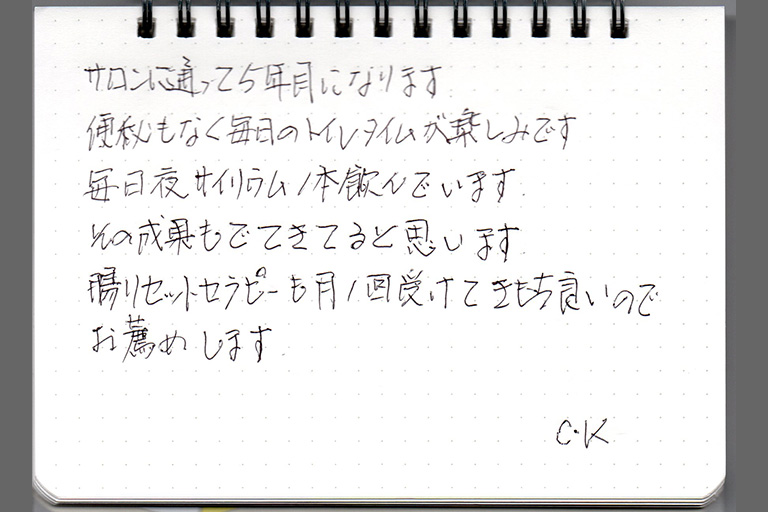 サロンに通って5年目になります
便秘もなく毎日のトイレタイムが楽しみです
毎日夜サイリウム1本飲んでいます
その成果もでてきてると思います
腸リセットセラピーも月1回受けてきもち良いので
お薦めします
C・K